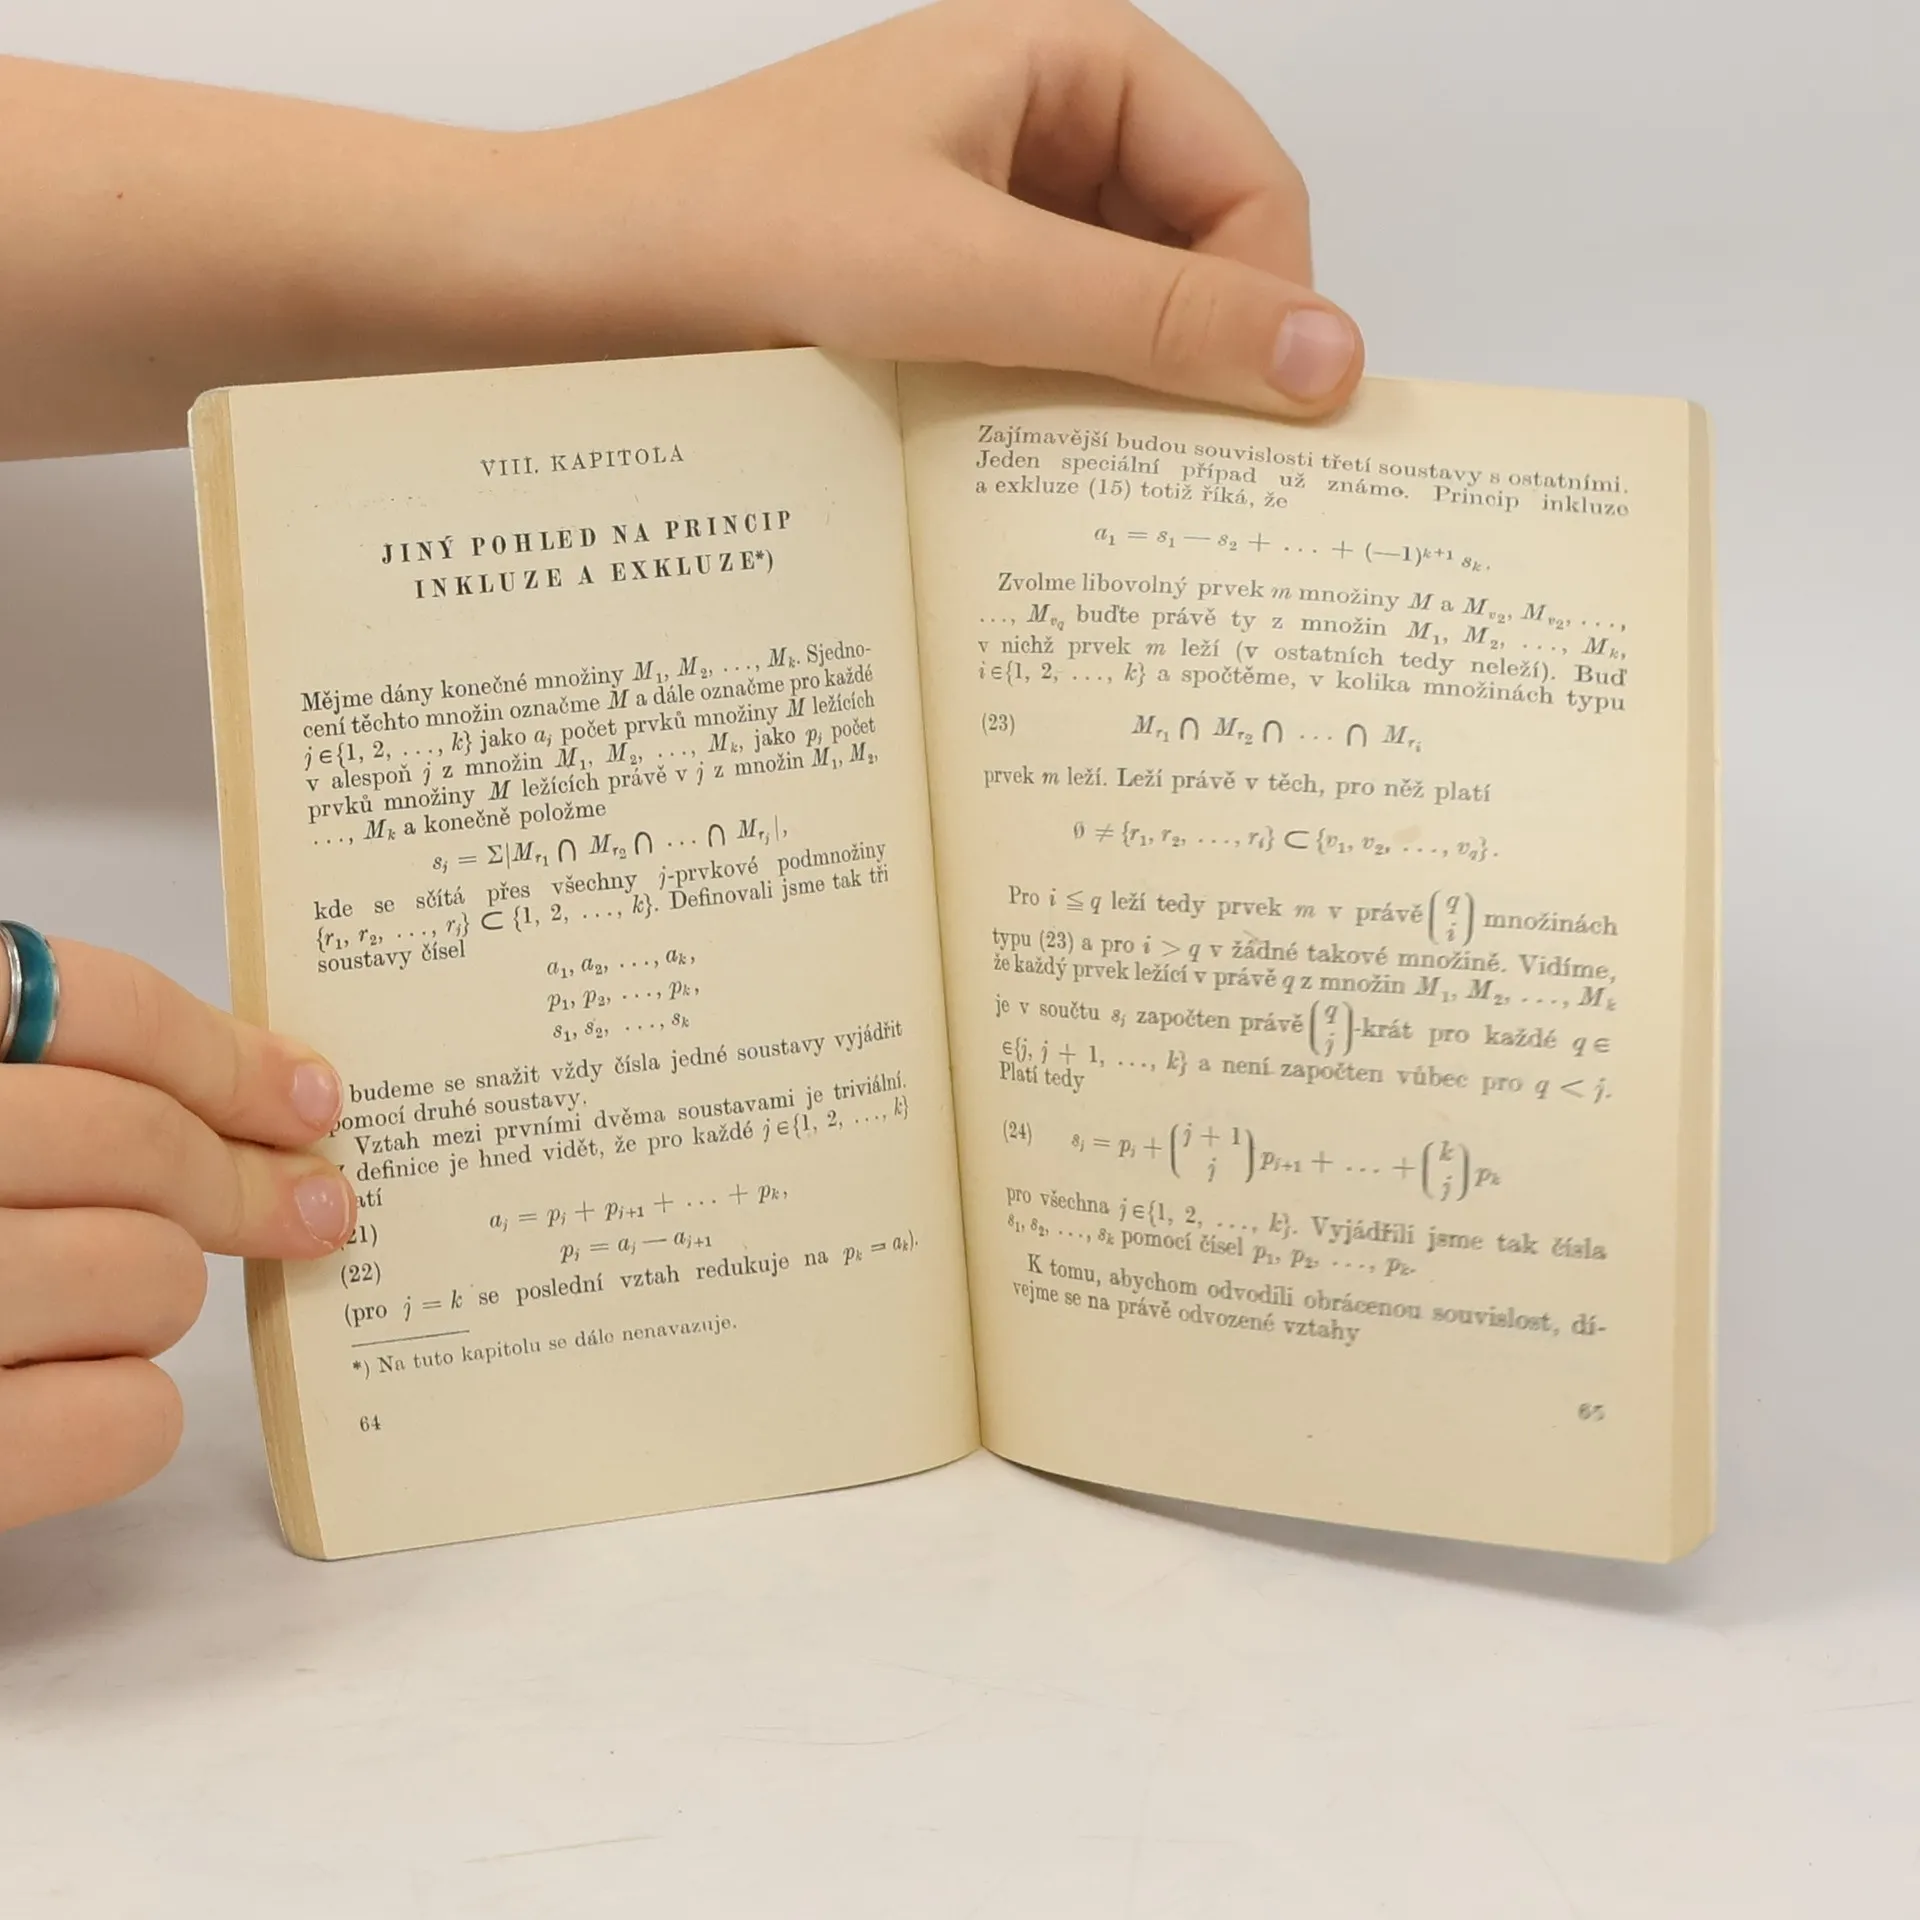 VIII. KAPITOLA
JINÝ POHLED NA PRINCIP
INKLUZE A EXKLUZE*)
Mějme dány konečné množiny M₁, M₂, ..., Mₖ. Sjedno-
cení těchto množin označme M a dále označme pro každé
j ∈ {1, 2, ..., k} jako aⱼ počet prvků množiny M ležících
v alespoň j z množin M₁, M₂, ..., Mₖ, jako pⱼ počet
prvků množiny M ležících právě v j z množin M₁, M₂,
..., Mₖ a konečně položme
sⱼ = Σ|M_{r₁} ⋂ M_{r₂} ⋂ ... ⋂ M_{rⱼ}|,
kde se sčítá přes všechny j-prvkové podmnožiny
{r₁, r₂, ..., rⱼ} ⊂ {1, 2, ..., k}. Definovali jsme tak tři
soustavy čísel
a₁, a₂, ..., aₖ,
p₁, p₂, ..., pₖ,
s₁, s₂, ..., sₖ
budeme se snažit vždy čísla jedné soustavy vyjádřit
pomocí druhé soustavy.
Vztah mezi prvními dvěma soustavami je triviální.
definice je hned vidět, že pro každé j ∈ {1, 2, ..., k}
atí
21) aⱼ = pⱼ + pⱼ₊₁ + ... + pₖ,
(22) pⱼ = aⱼ — aⱼ₊₁
(pro j = k se poslední vztah redukuje na pₖ = aₖ).
*) Na tuto kapitolu se dále nenavazuje.
64
Zajímavější budou souvislosti třetí soustavy s ostatními.
Jeden speciální případ už známe. Princip inkluze
a exkluze (15) totiž říká, že
a₁ = s₁ — s₂ + ... + (—1)ᵏ⁺¹ sₖ.
Zvolme libovolný prvek m množiny M a M_{v₂}, M_{v₂}, ...,
..., M_{v_q} buďte právě ty z množin M₁, M₂, ..., Mₖ,
v nichž prvek m leží (v ostatních tedy neleží). Buď
i ∈ {1, 2, ..., k} a spočtěme, v kolika množinách typu
(23) M_{r₁} ⋂ M_{r₂} ⋂ ... ⋂ M_{rᵢ}
prvek m leží. Leží právě v těch, pro něž platí
∅ ≠ {r₁, r₂, ..., rᵢ} ⊂ {v₁, v₂, ..., v_q}.
Pro i ≦ q leží tedy prvek m v právě (q i) množinách
typu (23) a pro i > q v žádné takové množině. Vidíme,
že každý prvek ležící v právě q z množin M₁, M₂, ..., Mₖ
je v součtu sⱼ započten právě (q j)-krát pro každé q ∈
∈ {j, j + 1, ..., k} a není započten vůbec pro q < j.
Platí tedy
(24) sⱼ = pⱼ + (j + 1 j) pⱼ₊₁ + ... + (k j) pₖ
pro všechna j ∈ {1, 2, ..., k}. Vyjádřili jsme tak čísla
s₁, s₂, ..., sₖ pomocí čísel p₁, p₂, ..., pₖ.
K tomu, abychom odvodili obrácenou souvislost, dí-
vejme se na právě odvozené vztahy
65